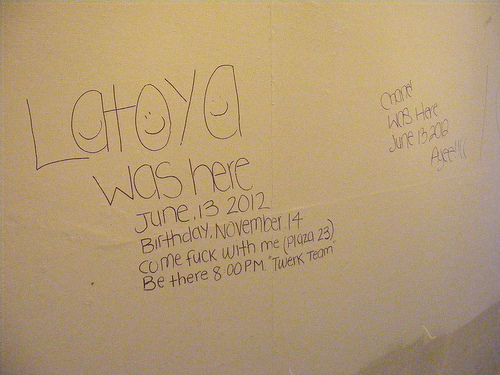 LatoyA
was here
June, 13 2012
Birthday, November 14
come fuck with me (Plaza 23)
Be there 8:00 PM "Twerk Team"
Chanel
Was Here
June 13 2012
Ayee!!!